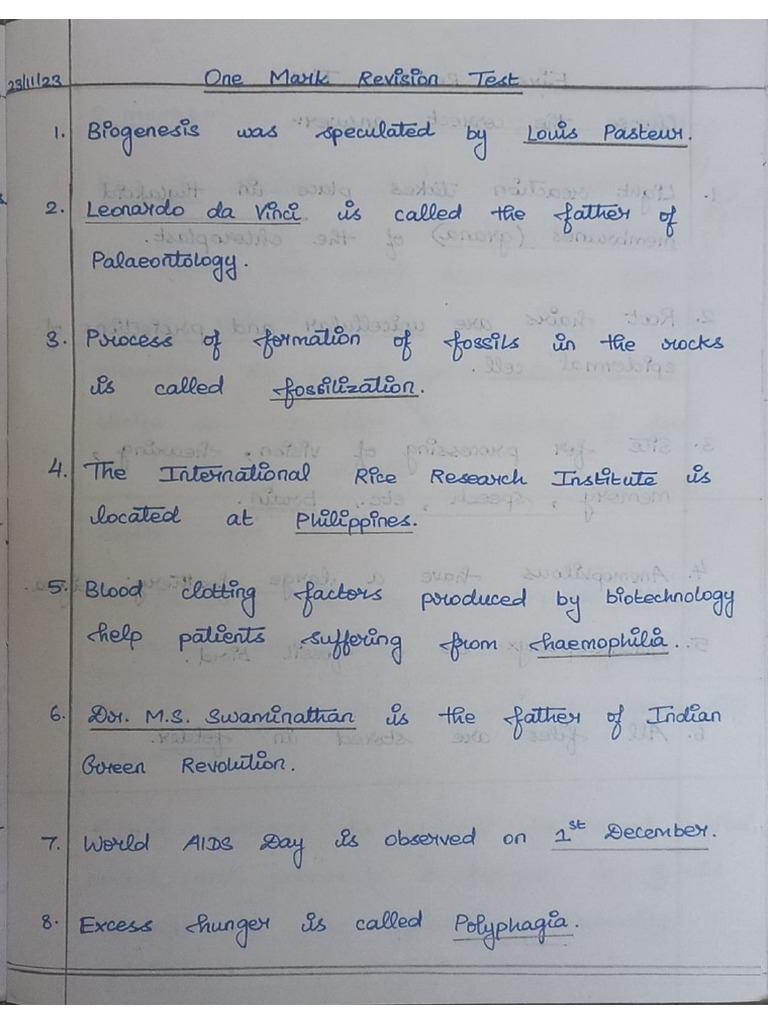 23/11/23
One Mark Revision Test
1. Biogenesis was speculated by Louis Pasteur.
2. Leonardo da Vinci is called the father of
Palaeontology.
3. Process of formation of fossils in the rocks
is called fossilization.
4. The International Rice Research Institute is
located at Philippines.
5. Blood clotting factors produced by biotechnology
help patients suffering from haemophilia..
6. Dr. M.S. Swaminathan is the father of Indian
Green Revolution.
7. World AIDS Day is observed on 1st December.
8. Excess hunger is called Polyphagia.